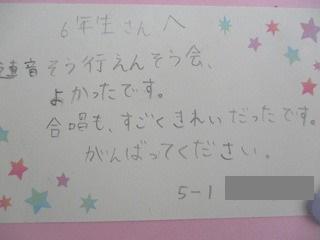 6年生さんへ
音そう行えんそう会、
よかったです。
合唱も、すごくきれいだったです。
がんばってください。
5-1